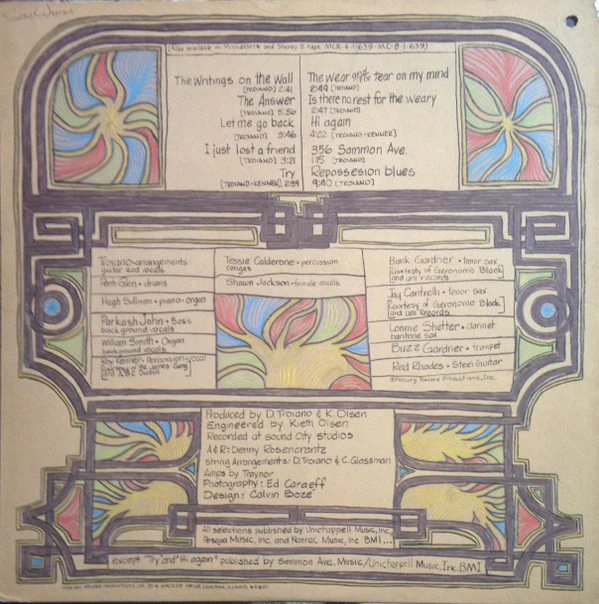 (Also available on Musicassette and Stereo 8 tape MCR-4-1-639-MC-8-1-639)
The Writings on the Wall
[TROIANO] 2:41
The Answer
[TROIANO] 5:56
Let me go back
[TROIANO] 3:46
I just lost a friend
[TROIANO] 3:21
Try
[TROIANO-KENNER] 2:59
The wear and the tear on my mind
2:49 [TROIANO]
Is there no rest for the weary
2:47 [TROIANO]
Hi again
4:02 [TROIANO-KENNER]
356 Sammon Ave.
1:15 [TROIANO]
Repossesion blues
9:40 [TROIANO]
Troiano • arrangements
guitar and vocals
Penti Glen • drums
Hugh Sullivan • piano • organ
Prakash John • Bass
background vocals
William Smith • Organ
background vocals
Roy Kenner •
Tessie Calderone • percussion
congas
Shawn Jackson • female vocals
Bank Gardner • tenor sax
[courtesy of Geronomo Black]
and uni records
Jay Cantrelli • tenor sax
[Courtesy of Geronomo Black]
and uni records
Lonnie Shetter • clarinet
baritone sax
Buzz Gardner • trumpet
Red Rhodes • Steel Guitar
©Mercury Record Productions, Inc.
Produced by D. Troiano & K. Olsen
Engineered by Kieth Olsen
Recorded at sound City studios
A & R: Denny Rosencrantz
String Arrangements: D. Troiano & C. Glassman
Amps by Traynor
Photography: Ed Caraeff
Design: Calvin Boze
All selections published by Unichappell Music, Inc.
Possum Music, Inc. and Norrac Music, Inc. BMI...
except "Try" and "Hi again" published by Sammon Ave. Music/Unichappell Music, Inc. BMI
MERCURY RECORD PRODUCTIONS, INC. 35 E. WACKER DRIVE, CHICAGO, ILLINOIS 60601